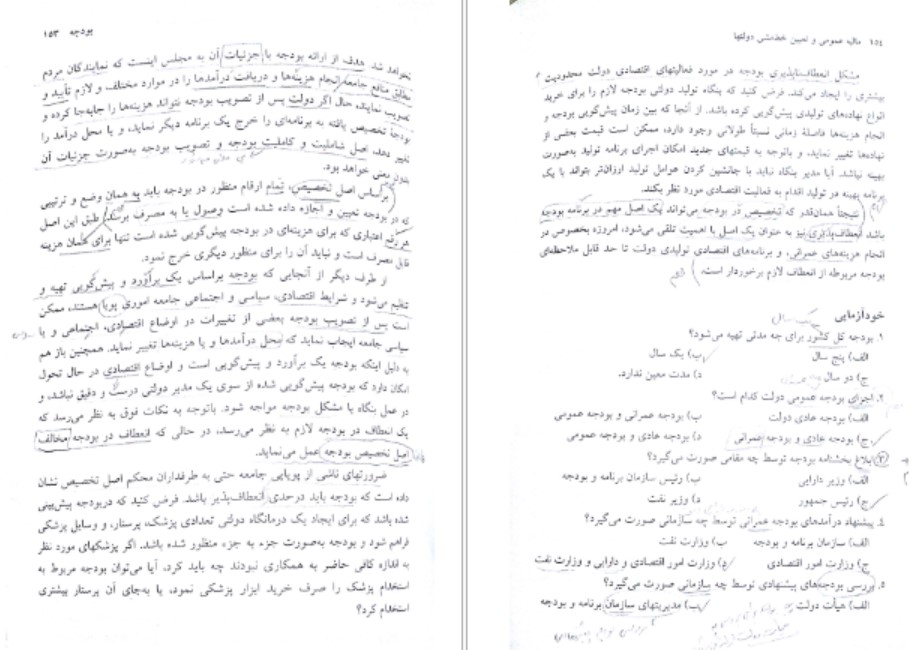 بودجه ۱۵۳
نخواهد شد. هدف از ارائه بودجه با جزئیات آن به مجلس اینست که نمایندگان مردم
مطابق منافع جامعه انجام هزینه‌ها و دریافت درآمدها را در موارد مختلف و لازم تأیید و
تصویب نمایند، حال اگر دولت پس از تصویب بودجه نتواند هزینه‌ها را جابه‌جا کرده و
بودجهٔ تخصیص یافته به برنامه‌ای را خرج یک برنامه دیگر نماید، و یا محل درآمد را
تغییر دهد، اصل شاملیت و کاملیت بودجه و تصویب بودجه به‌صورت جزئیات آن
بدون معنی خواهد بود.
براساس اصل تخصیص، تمام ارقام منظور در بودجه باید به همان وضع و ترتیبی
که در بودجه تعیین و اجازه داده شده است وصول یا به مصرف برسند. طبق این اصل
هر رقم اعتباری که برای هزینه‌ای در بودجه پیش‌گویی شده است تنها برای همان هزینه
قابل مصرف است و نباید آن را برای منظور دیگری خرج نمود.
از طرف دیگر از آنجایی که بودجه براساس یک برآورد و پیش‌گویی تهیه و
تنظیم می‌شود و شرایط اقتصادی، سیاسی و اجتماعی جامعه اموری پویا هستند، ممکن
است پس از تصویب بودجه بعضی از تغییرات در اوضاع اقتصادی، اجتماعی و یا
سیاسی جامعه ایجاب نماید که محل درآمدها و یا هزینه‌ها تغییر نماید. همچنین باز هم
به دلیل اینکه بودجه یک برآورد و پیش‌گویی است و اوضاع اقتصادی در حال تحول
امکان دارد که بودجه پیش‌گویی شده از سوی یک مدیر دولتی درست و دقیق نباشد، و
در عمل بنگاه با مشکل بودجه مواجه شود. باتوجه به نکات فوق به نظر می‌رسد که
یک انعطاف در بودجه لازم به نظر می‌رسد، در حالی که انعطاف در بودجه مخالف
اصل تخصیص بودجه عمل می‌نماید.
ضرورتهای ناشی از پویایی جامعه حتی به طرفداران محکم اصل تخصیص نشان
داده است که بودجه باید درحدی انعطاف‌پذیر باشد. فرض کنید که دربودجه پیش‌بینی
شده باشد که برای ایجاد یک درمانگاه دولتی تعدادی پزشک، پرستار، و وسایل پزشکی
فراهم شود و بودجه به‌صورت جزء به جزء منظور شده باشد. اگر پزشکهای مورد نظر
به اندازه کافی حاضر به همکاری نبودند چه باید کرد، آیا می‌توان بودجه مربوط به
استخدام پزشک را صرف خرید ابزار پزشکی نمود، یا به‌جای آن پرستار بیشتری
استخدام کرد؟
۱۵٤ مالیه عمومی و تعیین خط‌مشی دولتها
مشکل انعطاف‌ناپذیری بودجه در مورد فعالیتهای اقتصادی دولت محدودیت
بیشتری را ایجاد می‌کند. فرض کنید که بنگاه تولید دولتی بودجه لازم را برای خرید
انواع نهاده‌های تولیدی پیش‌گویی کرده باشد. از آنجا که بین زمان پیش‌گویی بودجه و
انجام هزینه‌ها فاصله زمانی نسبتاً طولانی وجود دارد، ممکن است قیمت بعضی از
نهاده‌ها تغییر نماید، و باتوجه به قیمتهای جدید امکان اجرای برنامه تولید به‌صورت
بهینه نباشد. آیا مدیر بنگاه نباید با جانشین کردن عوامل تولید ارزان‌تر بتواند با یک
برنامه بهینه در تولید اقدام به فعالیت اقتصادی مورد نظر بکند.
نتیجتاً همان‌قدر که تخصیص در بودجه می‌تواند یک اصل مهم در برنامه بودجه
باشد انعطاف‌پذیری نیز به عنوان یک اصل با اهمیت تلقی می‌شود، امروزه بخصوص در
انجام هزینه‌های عمرانی، و برنامه‌های اقتصادی تولیدی دولت تا حد قابل ملاحظه‌ای
بودجه مربوطه از انعطاف لازم برخوردار است.
خودآزمایی
۱. بودجه کل کشور برای چه مدتی تهیه می‌شود؟
الف) پنج سال ب) یک سال
ج) دو سال د) مدت معین ندارد.
۲. اجزای بودجه عمومی دولت کدام است؟
الف) بودجه عادی دولت ب) بودجه عمرانی و بودجه عمومی
ج) بودجه عادی و بودجه عمرانی د) بودجه عادی و بودجه عمومی
۳. ابلاغ بخشنامه بودجه توسط چه مقامی صورت می‌گیرد؟
الف) وزیر دارایی ب) رئیس سازمان برنامه و بودجه
ج) رئیس جمهور د) وزیر نفت
٤. پیشنهاد درآمدهای بودجه عمرانی توسط چه سازمانی صورت می‌گیرد؟
الف) سازمان برنامه و بودجه ب) وزارت نفت
ج) وزارت امور اقتصادی د) وزارت امور اقتصادی و دارایی و وزارت نفت
۵. بررسی بودجه‌های پیشنهادی توسط چه سازمانی صورت می‌گیرد؟
الف) هیأت دولت ب) مدیریتهای سازمان برنامه و بودجه